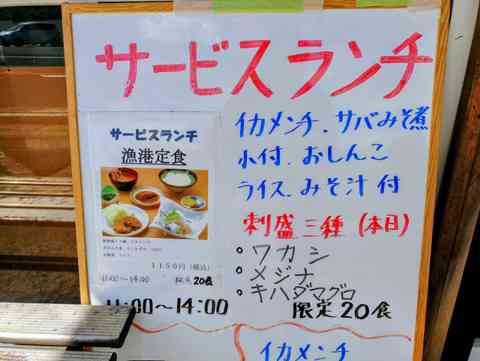 サービスランチ
サービスランチ
漁港定食
1150円(税込)
11:00〜14:00
限定20食
11:00〜14:00
イカメンチ、サバみそ煮
小付、おしんこ
ライス、みそ汁付
刺盛三種(本日)
。ワカシ
。メジナ
。キハダマグロ
限定20食
イカメンチ